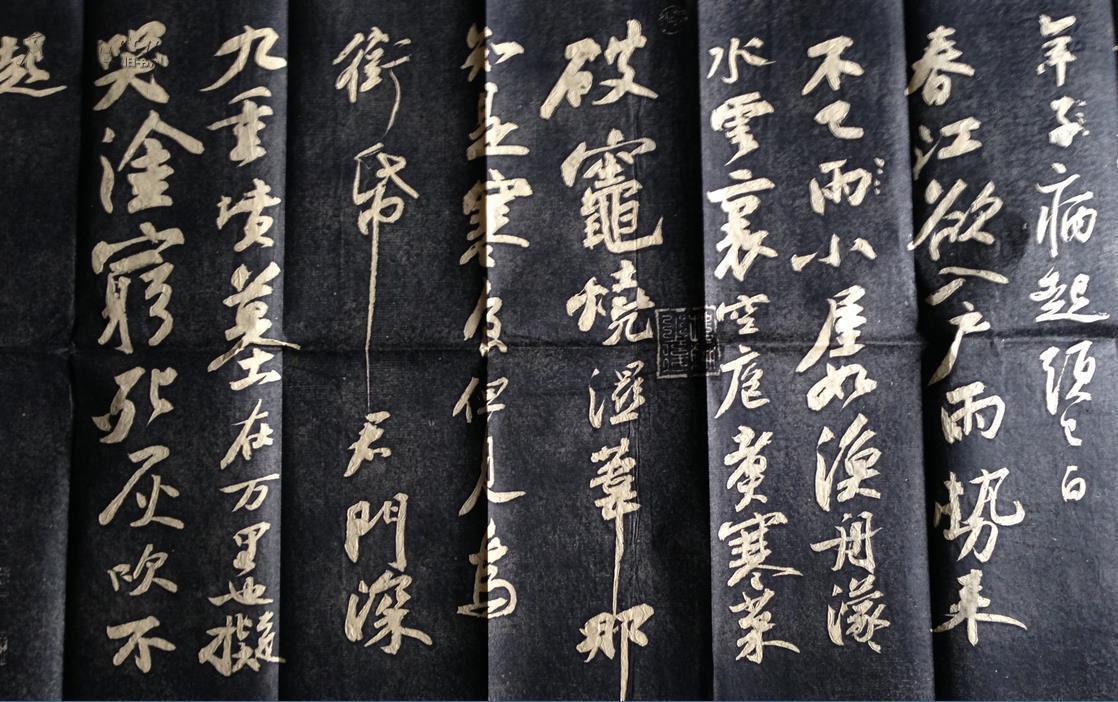 年子病起頭已白
春江欲入戶雨勢來
不已雨小屋如漁舟濛
水雲裏空庖煮寒菜
破竈燒濕葦那
知是寒食但見烏
銜帋君門深
九重墳墓在万里也擬
哭塗窮死灰吹不
起